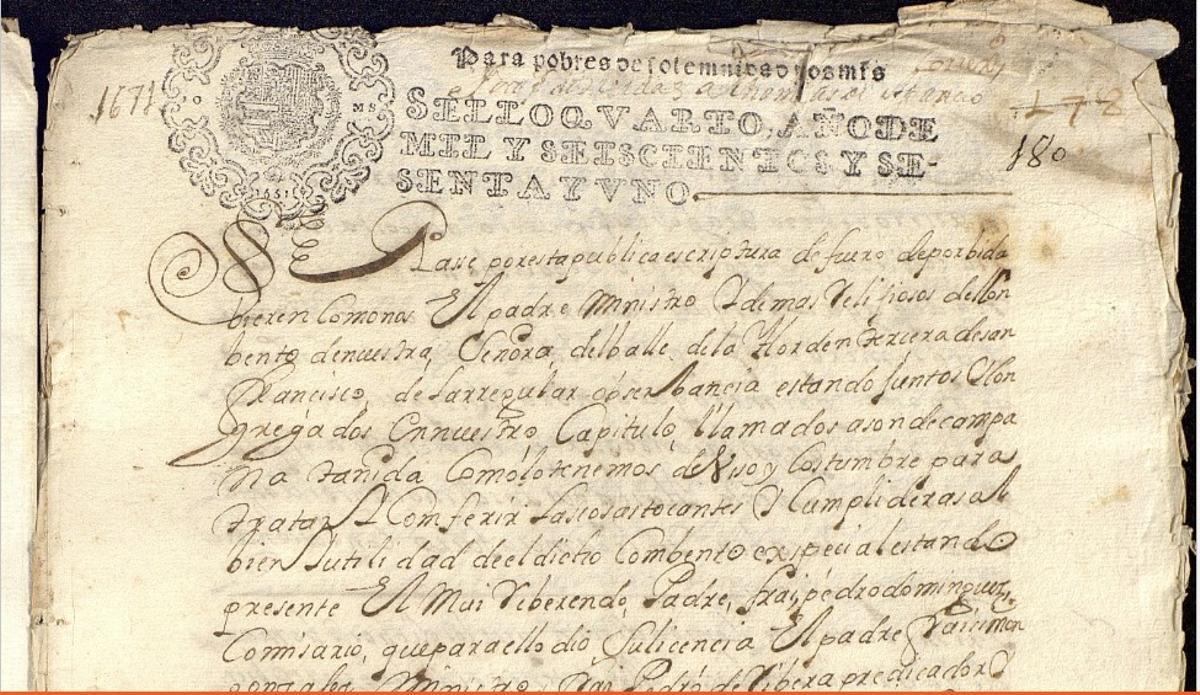 Para pobres de solemnidad dos mrs
1671
SELLO QVARTO, AÑO DE
MIL Y SEISCIENTOS Y SE-
SENTA Y VNO.
178
180
1661
SE Pase por esta publica escriptura de fuero deporbida
bieren Comonos El padre Ministro Y demas Relisiosos del Con
bento denuestra Senora delballe dela Horden tercera desan
Francisco, de larregular obserbancia estando Juntos Y Con
gregados Ennuestro Capitulo, llamados asondecampa
na tañida Comolotenemos de Vso y Costumbre para
tratar Y Comferir las cosas tocantes Y Cumplideras al
bien Y utilidad deel dicho Combento expecial estando
presente El Mui Reberendo Padre, frai, pedro dominguez,
Comisario, que para ello dio Su licencia El padre Frai simon
gonzales Ministro Frai Pedro de Ribera predicador Y